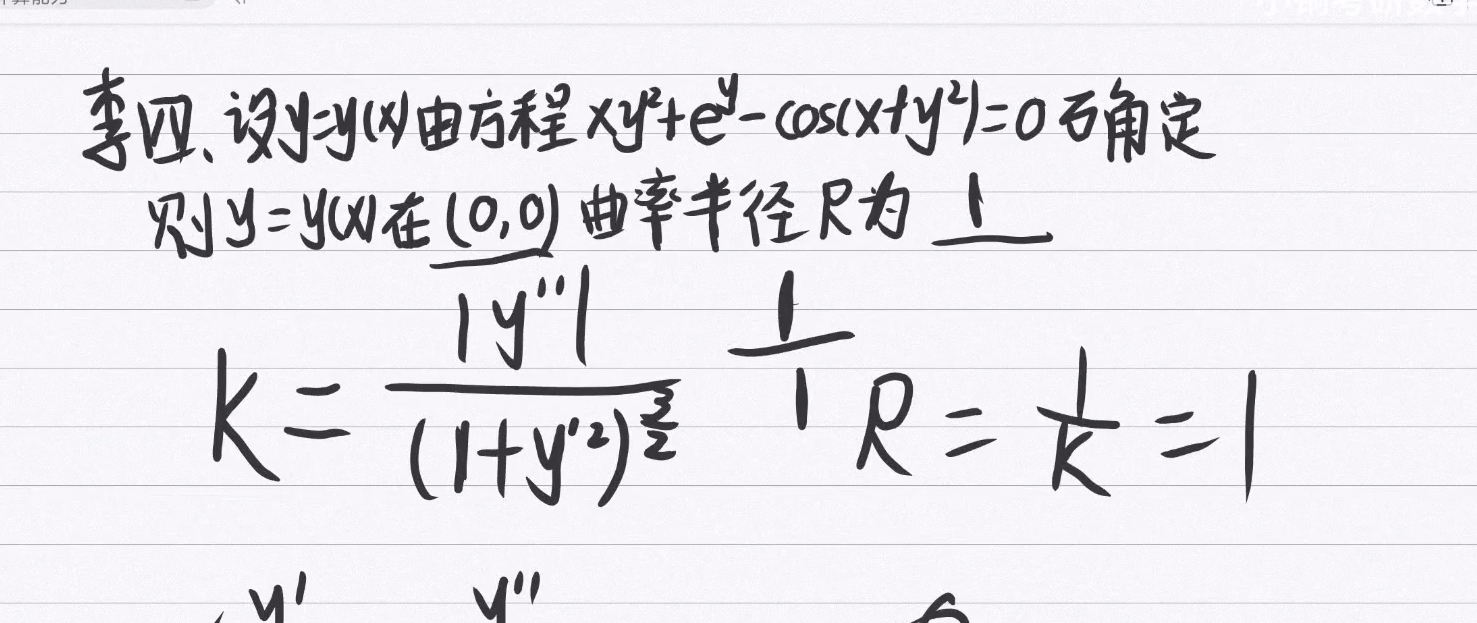 李四、设y=y(x)由方程 xy²+e^y-cos(x+y²)=0 确定
则y=y(x)在(0,0)曲率半径R为 1
K = |y''| / (1+y'²)^(3/2)   1/1   R = 1/K = 1
y'   y''